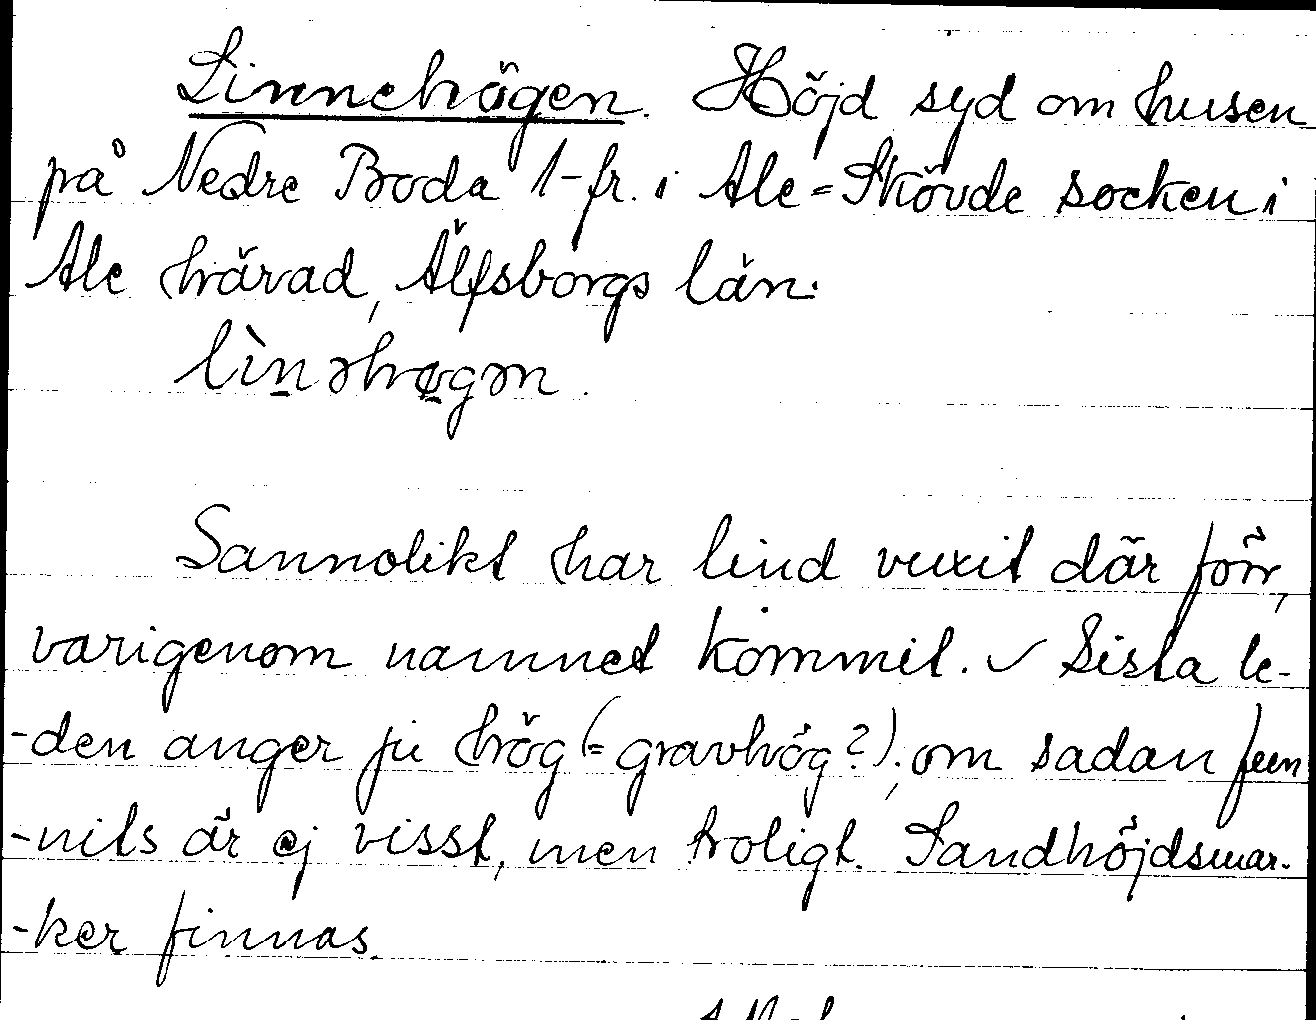 Linnehögen. Höjd syd om husen
på Nedre Boda 1-fr. i Ale-Skövde socken i
Ale härad, Älfsborgs län.
lìnəhøgən.
Sannolikt har lind vuxit där förr,
varigenom namnet kommit. ✓ Sista le-
-den anger ju hög (= gravhög?); om sadan fun
-nits är ej visst, men troligt. Sandhöjdsmar-
-ker finnas.